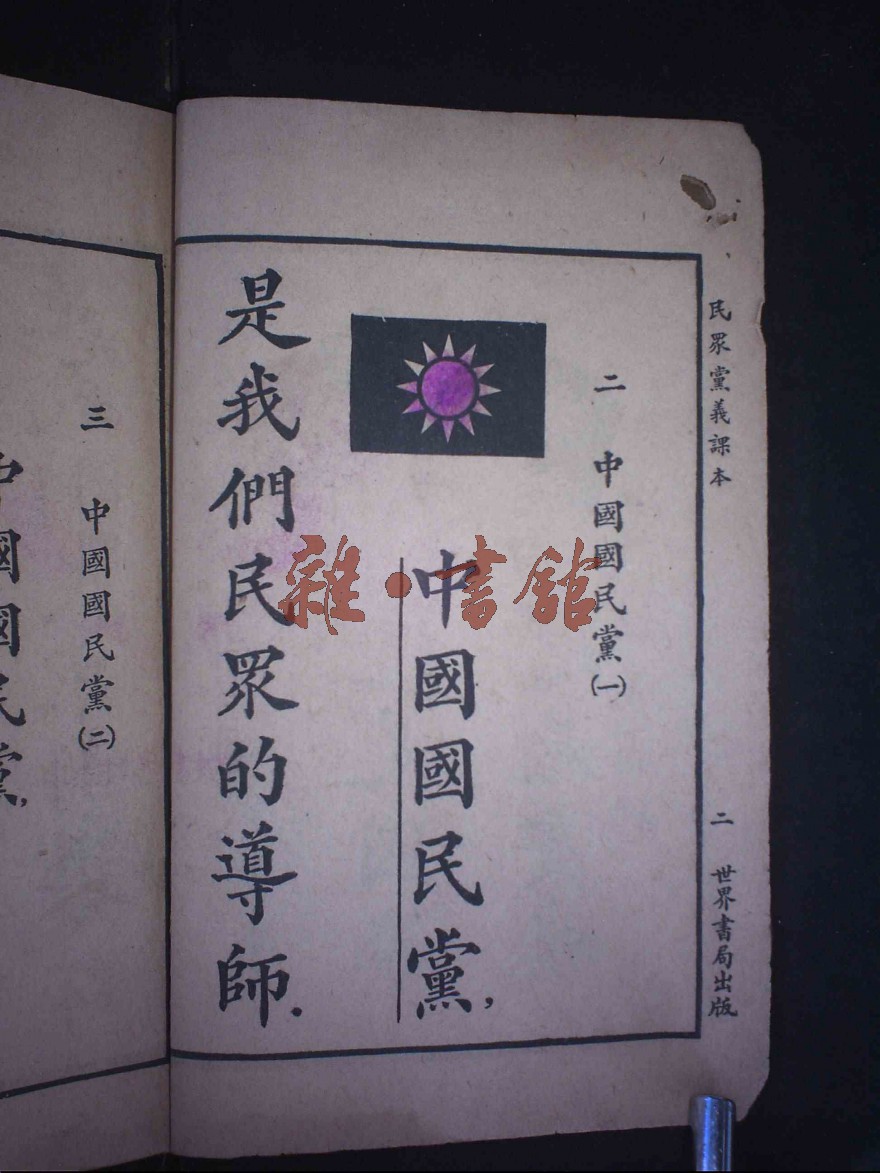 民眾黨義課本
二
世界書局出版
二 中國國民黨㈠
中國國民黨,
是我們民眾的導師.
三 中國國民黨㈡
中國國民黨,
雜·書館